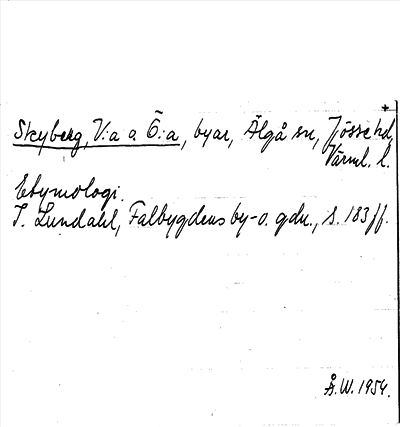 Skyberg, V:a o Ö:a, byar, Älgå sn, Jösse hd,
Värml. l.
Etymologi.
I. Lundahl, Falbygdens by- o. gdn., s. 183 ff.
Å.W. 1954.